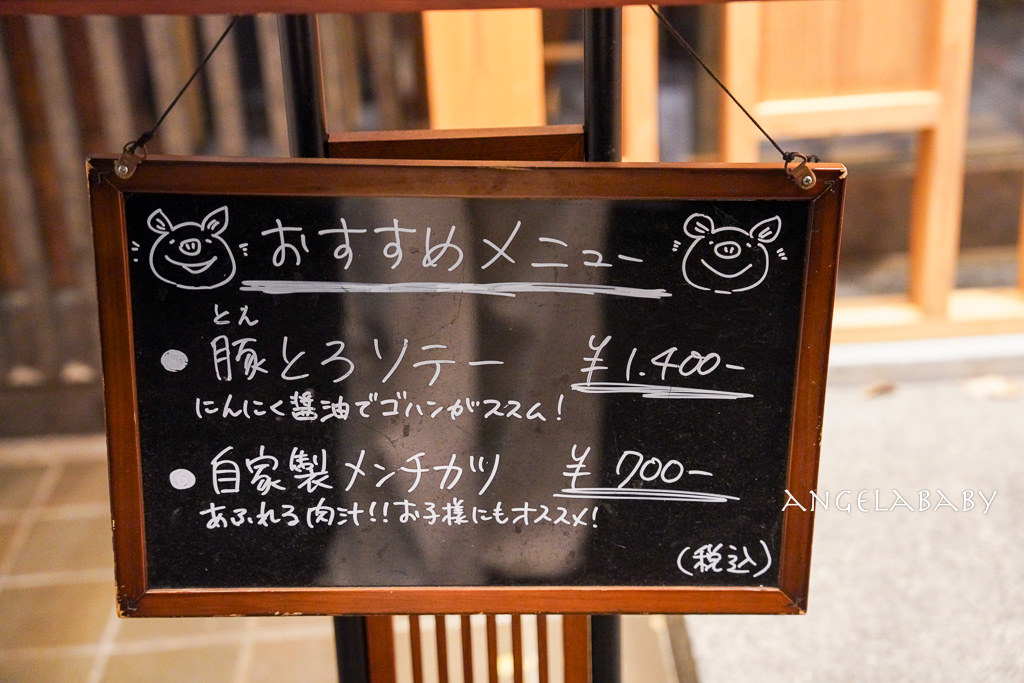 おすすめメニュー
とん
● 豚とろソテー ¥1.400-
にんにく醤油でゴハンがススム!
● 自家製メンチカツ ¥700-
あふれる肉汁!!お子様にもオススメ!
(税込)
ANGELABABY